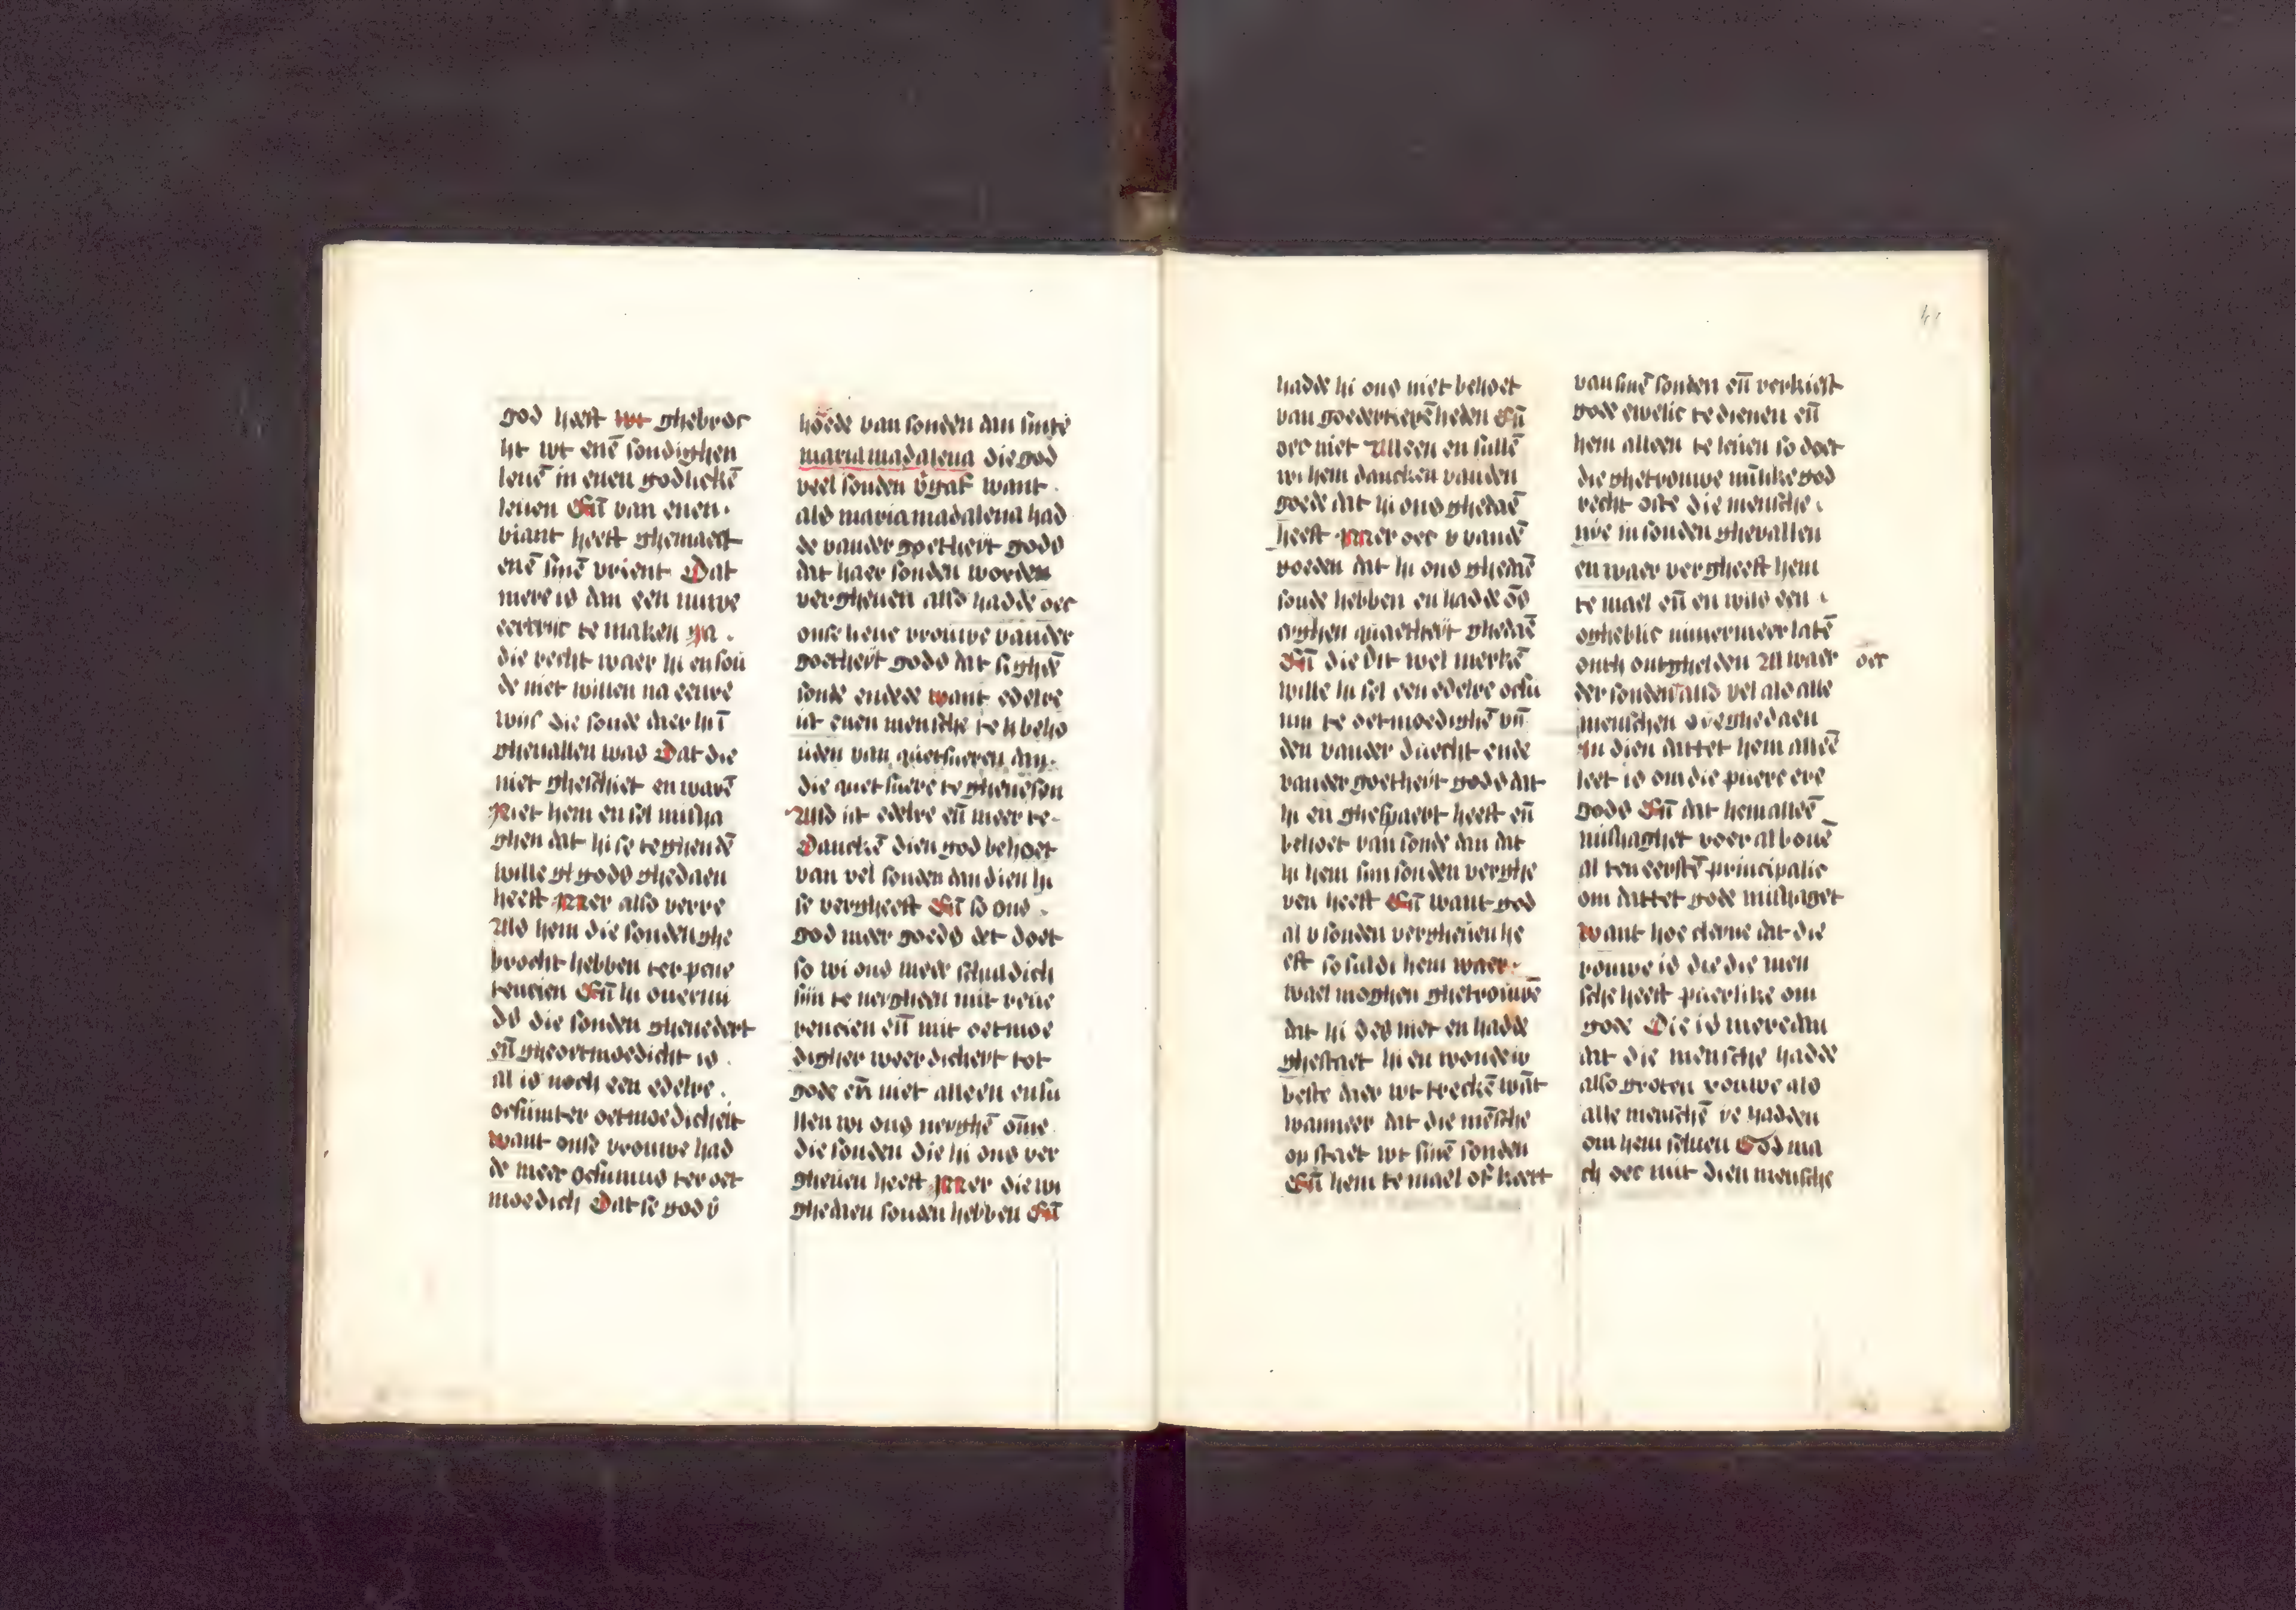 god heeft wt ghebroc
ht wt enē sondighen
leuē in enen godlickē
leuen Eñ van enen
viant heeft ghemaect
enē sinē vrient Dat
mere is dan een nuwe
eertrijc te maken Ja
die recht waer hi en sou
de niet willen na eenre
wijs die sonde daer hi ī
gheuallen was Dat die
niet gheschiet en warē
Niet hem en sel misha
ghen dat hi se teghen dē
wille gods ghedaen
heeft Mer also verre
Als hem die sonden ghe
brocht hebben ter peni
tencien Eñ hi ouermi
ds die sonden ghenedert
eñ gheoetmoedicht is
al is noch een edelre
oefūnter oetmoedicheit
want onse vrouwe had
de meer oefnnus ter oet
moedich Dat se god v̄
hoede van sonden dan sinte
maria madalena die god
veel sonden v̄gaf want
als maria madalena had
de vander goetheit gods
dat haer sonden worden
vergheuen also hadde oec
onse lieue vrouwe vander
goetheit gods dat si ghē
sonde en dede want edelre
ist enen mensche te beho
uden van quetsueren dan
die quetsuere te ghenesen
Also ist edelre eñ meer te
Danckē dien god behoet
van vel sonden dan dien hi
se vergheeft Eñ so ons
god meer goeds det doet
so wi ons meer schuldich
sijn te neyghen mit reue
rencien eñ mit oetmoe
digher weerdicheit tot
gode eñ niet alleen en su
llen wi ons neyghē om̄e
die sonden die hi ons ver
gheuen heeft Mer die wi
ghedaen souden hebben Eñ
hadde hi ons niet behoet
van goedertierēheden Eñ
oec niet Alleen en sullē
wi hem dancken vanden
goede dat hi ons ghedaē
heeft Mer oec v vandē
goeden dat hi ons ghedaē
soude hebben en hadde ōs
eyghen quaetheit ghedaē
Eñ die dit wel merkē
wille hi sel een edelre oefn
nn te oetmoedighē vīn
den vander duecht ende
vander goetheit gods dat
hi en ghespaert heeft eñ
behoet van sonde dan dat
hi hem sijn sonden verghe
uen heeft Eñ want god
al v sonden vergheuen he
eft so suldi hem waer
wael moghen ghetrouwē
dat hi des niet en hadde
ghestaet hi en woude v
beste daer wt treckē wāt
wanneer dat die mēsche
op staet wt sinē sonden
Eñ hem te mael of keert
van sinē sonden eñ verkiest
gode ewelic te dienen eñ
hem alleen te leuen so doet
die ghetrouwe mīlike god
recht ofte die mensche
nye in sonden gheuallen
en waer vergheeft hem
te mael eñ en wils een
ogheblic nimmermeer latē
onch ontghelden Al waer oec
der sonden als vel als alle
menschen oye ghedaen
In dien dattet hem alleē
leet is om die puere ere
gods Eñ dat hem alleē
mishaghet voer al bouē
al ten eerstē principalic
om dattet gode mishaget
want hoe cleyne dat die
rouwe is die die men
sche heeft puerlike om
gode Die is mere dan
dat die mensche hadde
also groten rouwe als
alle menschē ye hadden
om hem seluen God ma
ch oec mit dien mensche